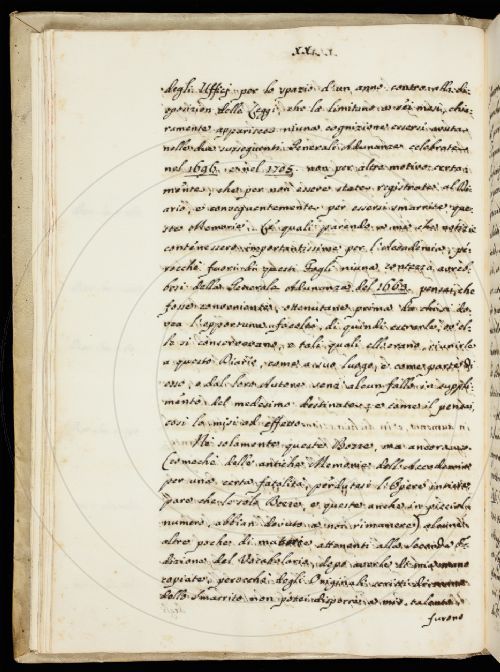 degli Uffizj per lo spazio d'un anno contro alla di-
sposizion delle Leggi, che lo limitano a sei mesi, chia-
ramente apparisce niuna cognizione essersi avuta
nelle due susseguenti Generali Adunanze celebrate
nel 1696. e nel 1705. non per altro motivo certa-
mente, che per non essere state registrate al Di-
ario, e conseguentemente per essersi smarrite que-
ste Memorie. Le quali parendo a me che notizie
contenessero importantissime per l'Accademia, pe-
rocchè fuori di questi Fogli niuna contezza avreb-
besi della Generale Adunanza del 1663. pensai, che
fosse conveniente, ottenutane prima da chi si do-
vea l'opportuna facoltà, di quindi estrarle, ov'el-
le si conservavano, e tali quali ell'erano, riunirle
a questo Diario, come a suo luogo, e come parte di
esso, e dal loro Autore senz'alcun fallo in suppli-
mento del medesimo destinate; e come il pensai,
così lo misi ad effetto.
Nè solamente queste Bozze, ma ancora
(comechè delle antiche Memorie dell'Accademia
per una certa fatalità, perdutasi l'Opere intiere
pare che le sole Bozze, e queste anche in piccolo
numero, abbian dovuto a noi rimanere) alcune
altre poche di materie attenenti alla seconda E-
dizione del Vocabolario, dopo averle di mia mano
copiate, perocchè degli Originali scritti
dello Smarrito non potei disporre a mio talento,
furono